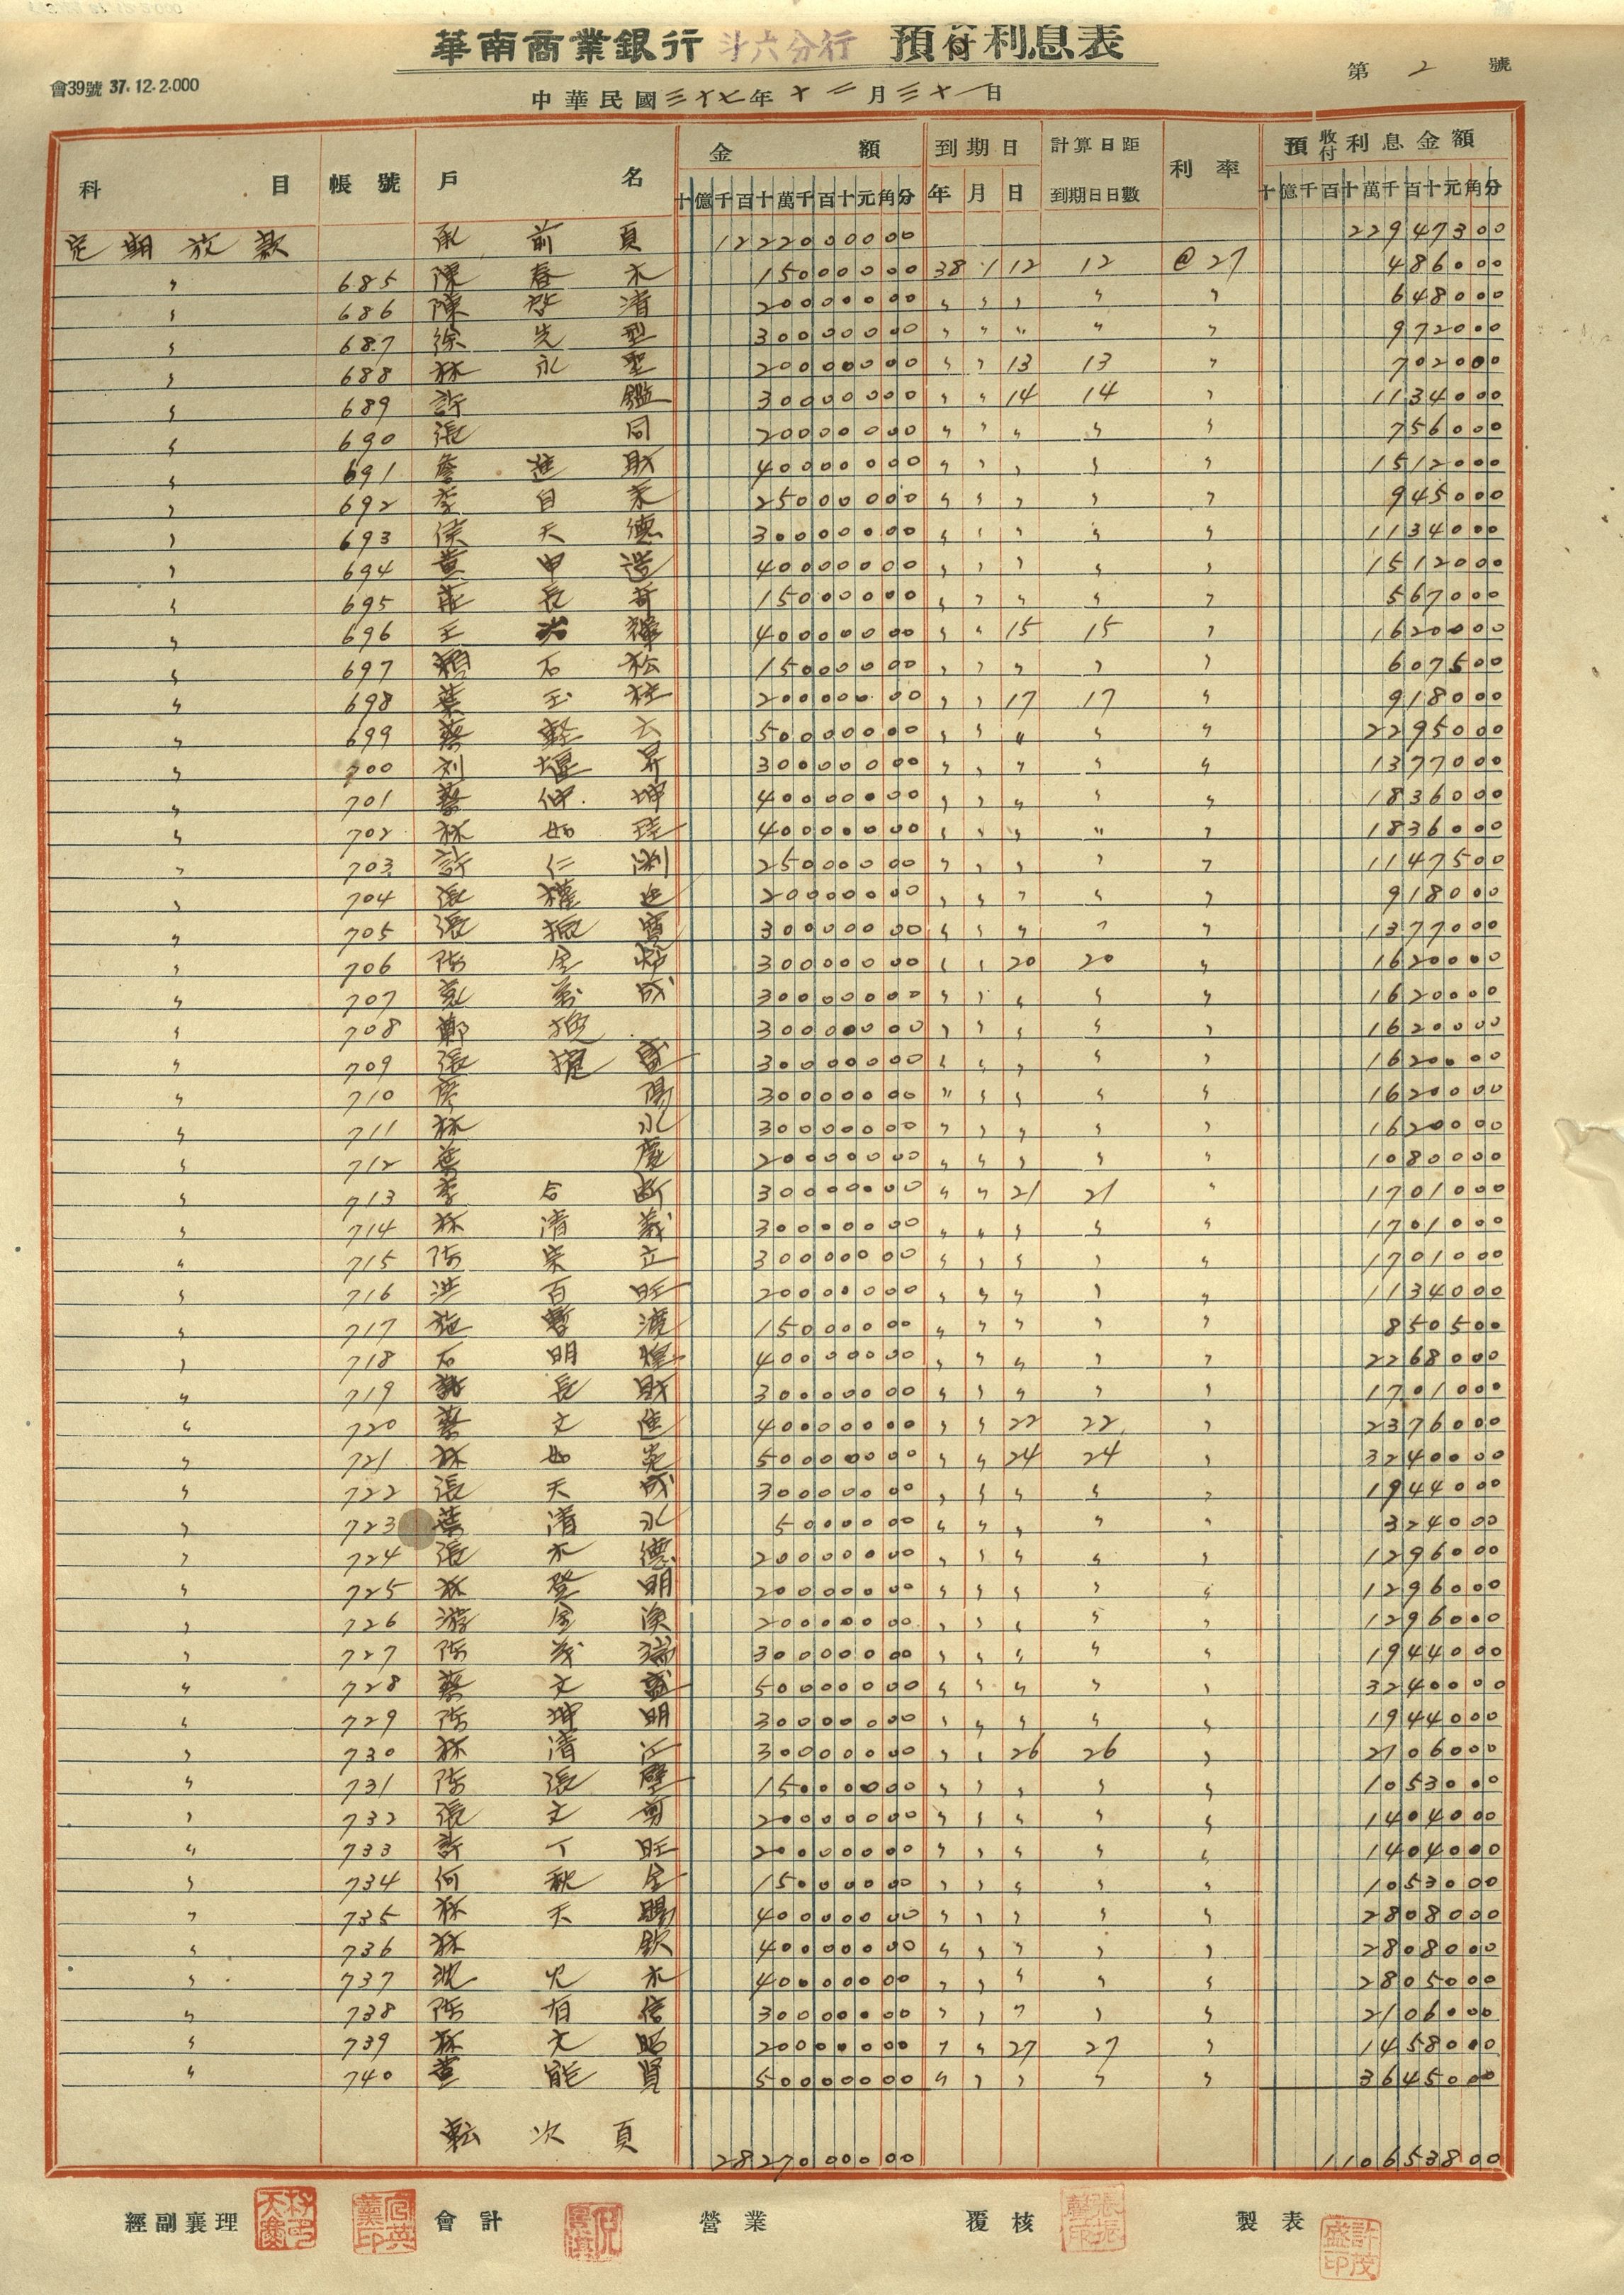 華南商業銀行 斗六分行 預付利息表
會39號 37.12.2.000
第 2 號
中華民國三十七年十二月三十一日
科目 帳號 戶名 金額 到期日 計算日距到期日日數 利率 預收付利息金額
十億千百十萬千百十元角分 年 月 日 十億千百十萬千百十元角分
定期放款 承前頁 122200000000 22947300
〃 685 陳春木 15000000 38 1 12 12 @27 486000
〃 686 陳啓清 20000000 〃 〃 〃 〃 〃 648000
〃 687 徐先型 30000000 〃 〃 〃 〃 〃 972000
〃 688 林永聖 20000000 〃 〃 13 13 〃 702000
〃 689 許鑑 30000000 〃 〃 14 14 〃 1134000
〃 690 張同 20000000 〃 〃 〃 〃 〃 756000
〃 691 詹進財 40000000 〃 〃 〃 〃 〃 1512000
〃 692 李自 25000000 〃 〃 〃 〃 〃 945000
〃 693 侯天德 30000000 〃 〃 〃 〃 〃 1134000
〃 694 黃申 40000000 〃 〃 〃 〃 〃 1512000
〃 695 長 15000000 〃 〃 〃 〃 〃 567000
〃 696 王 40000000 〃 〃 15 15 〃 1620000
〃 697 賴石松 15000000 〃 〃 〃 〃 〃 607500
〃 698 葉玉柱 20000000 〃 〃 17 17 〃 918000
〃 699 蔡 50000000 〃 〃 〃 〃 〃 2295000
〃 700 刘堰昇 30000000 〃 〃 〃 〃 〃 1377000
〃 701 蔡仲坤 40000000 〃 〃 〃 〃 〃 1836000
〃 702 林如 40000000 〃 〃 〃 〃 〃 1836000
〃 703 許仁 25000000 〃 〃 〃 〃 〃 1147500
〃 704 張 20000000 〃 〃 〃 〃 〃 918000
〃 705 張振 30000000 〃 〃 〃 〃 〃 1377000
〃 706 陈金 30000000 〃 〃 20 20 〃 1620000
〃 707 成 30000000 〃 〃 〃 〃 〃 1620000
〃 708 鄭 30000000 〃 〃 〃 〃 〃 1620000
〃 709 張 30000000 〃 〃 〃 〃 〃 1620000
〃 710 廖陽 30000000 〃 〃 〃 〃 〃 1620000
〃 711 林水 30000000 〃 〃 〃 〃 〃 1620000
〃 712 慶 20000000 〃 〃 〃 〃 〃 1080000
〃 713 李合 30000000 〃 〃 21 21 〃 1701000
〃 714 林清義 30000000 〃 〃 〃 〃 〃 1701000
〃 715 陈崇立 30000000 〃 〃 〃 〃 〃 1701000
〃 716 洪百旺 20000000 〃 〃 〃 〃 〃 1134000
〃 717 施 15000000 〃 〃 〃 〃 〃 850500
〃 718 石明煌 40000000 〃 〃 〃 〃 〃 2268000
〃 719 長財 30000000 〃 〃 〃 〃 〃 1701000
〃 720 蔡文進 40000000 〃 〃 22 22 〃 2376000
〃 721 林如 50000000 〃 〃 24 24 〃 3240000
〃 722 張天成 30000000 〃 〃 〃 〃 〃 1944000
〃 723 葉清水 5000000 〃 〃 〃 〃 〃 324000
〃 724 張木德 20000000 〃 〃 〃 〃 〃 1296000
〃 725 林登明 20000000 〃 〃 〃 〃 〃 1296000
〃 726 游金漢 20000000 〃 〃 〃 〃 〃 1296000
〃 727 陈茂瑞 30000000 〃 〃 〃 〃 〃 1944000
〃 728 蔡文盛 50000000 〃 〃 〃 〃 〃 3240000
〃 729 陈坤明 30000000 〃 〃 〃 〃 〃 1944000
〃 730 林清江 30000000 〃 〃 26 26 〃 2106000
〃 731 陈張壁 15000000 〃 〃 〃 〃 〃 1053000
〃 732 張文剪 20000000 〃 〃 〃 〃 〃 1404000
〃 733 許丁旺 20000000 〃 〃 〃 〃 〃 1404000
〃 734 何秋金 15000000 〃 〃 〃 〃 〃 1053000
〃 735 林天賜 40000000 〃 〃 〃 〃 〃 2808000
〃 736 林欽 40000000 〃 〃 〃 〃 〃 2808000
〃 737 沈火木 40000000 〃 〃 〃 〃 〃 2805000
〃 738 陈有信 30000000 〃 〃 〃 〃 〃 2106000
〃 739 林大昭 20000000 〃 〃 27 27 〃 1458000
〃 740 黃能賢 50000000 〃 〃 〃 〃 〃 3645000
転次頁 2827000000 110653800
經副襄理 會計 營業 覆核 製表
許茂盛印